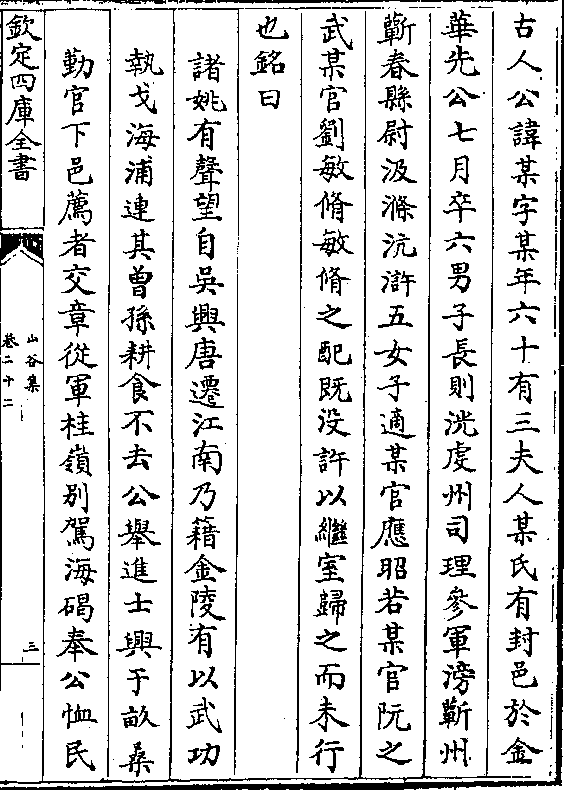 古人公諱某字某年六十有三夫人某氏有封邑於金
華先公七月卒六男子長則洸䖍州司理參軍滂蘄州
蘄春縣尉汲滌沆滸五女子適某官應昭若某官阮之
武某官劉敏脩敏脩之配既没許以繼室歸之而未行
也銘曰
諸姚有聲望自吳興唐遷江南乃籍金陵有以武功
執戈海浦連其曽孫耕食不去公舉進士興于畝桑
勤官下邑薦者交章從軍桂嶺别駕海碣奉公恤民
欽定四庫全書
山谷集
卷二十二
三